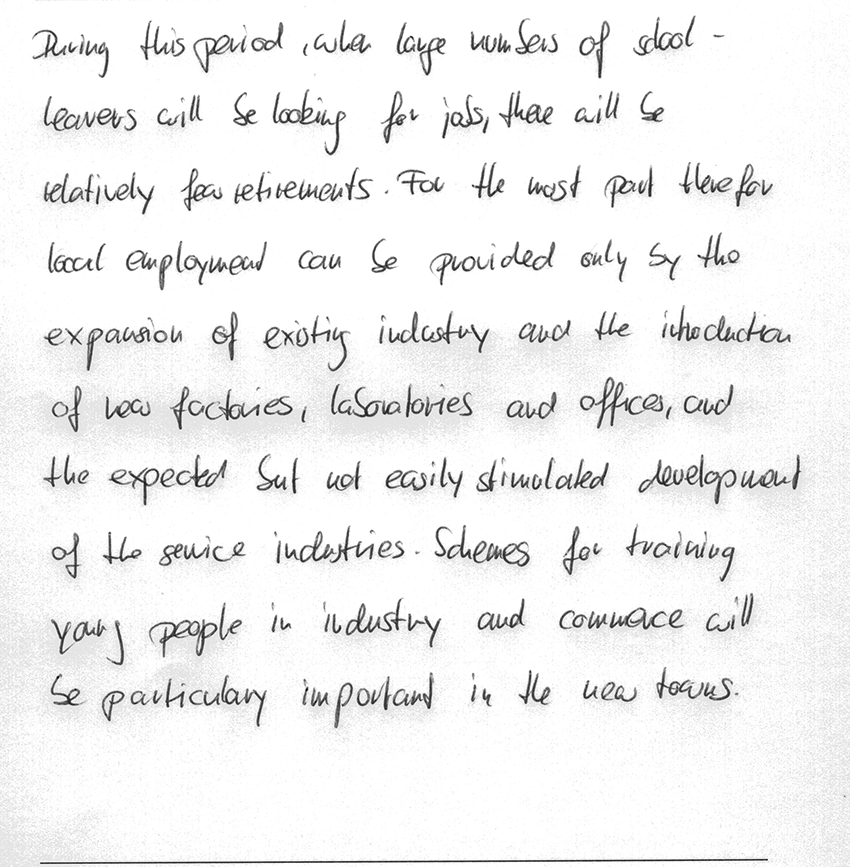 During this period, when large numbers of school -
leavers will be looking for jobs, there will be
relatively few retirements. For the most part therefor
local employment can be provided only by the
expansion of existing industry and the introduction
of new factories, laboratories and offices, and
the expected but not easily stimulated development
of the service industries. Schemes for training
young people in industry and commerce will
be particulary important in the new towns.